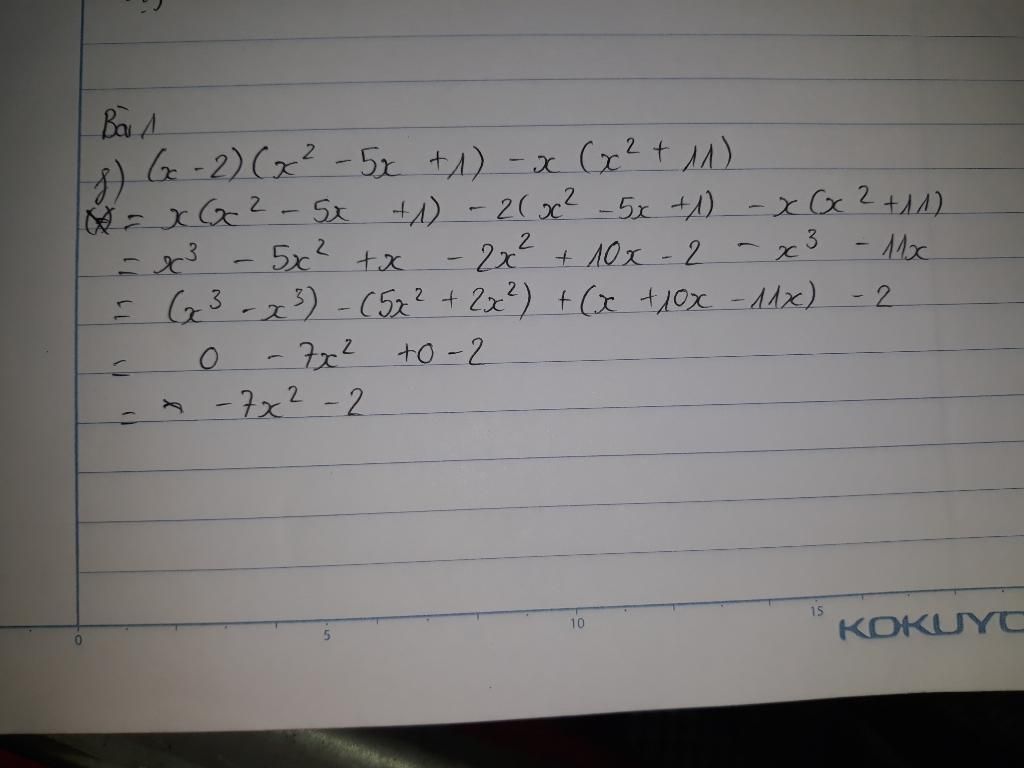 Bài 1
f) (x - 2)(x² - 5x + 1) - x (x² + 11)
= x(x² - 5x + 1) - 2(x² - 5x + 1) - x(x² + 11)
= x³ - 5x² + x - 2x² + 10x - 2 - x³ - 11x
= (x³ - x³) - (5x² + 2x²) + (x + 10x - 11x) - 2
= 0 - 7x² + 0 - 2
= - 7x² - 2
0 5 10 15
KOKUYO